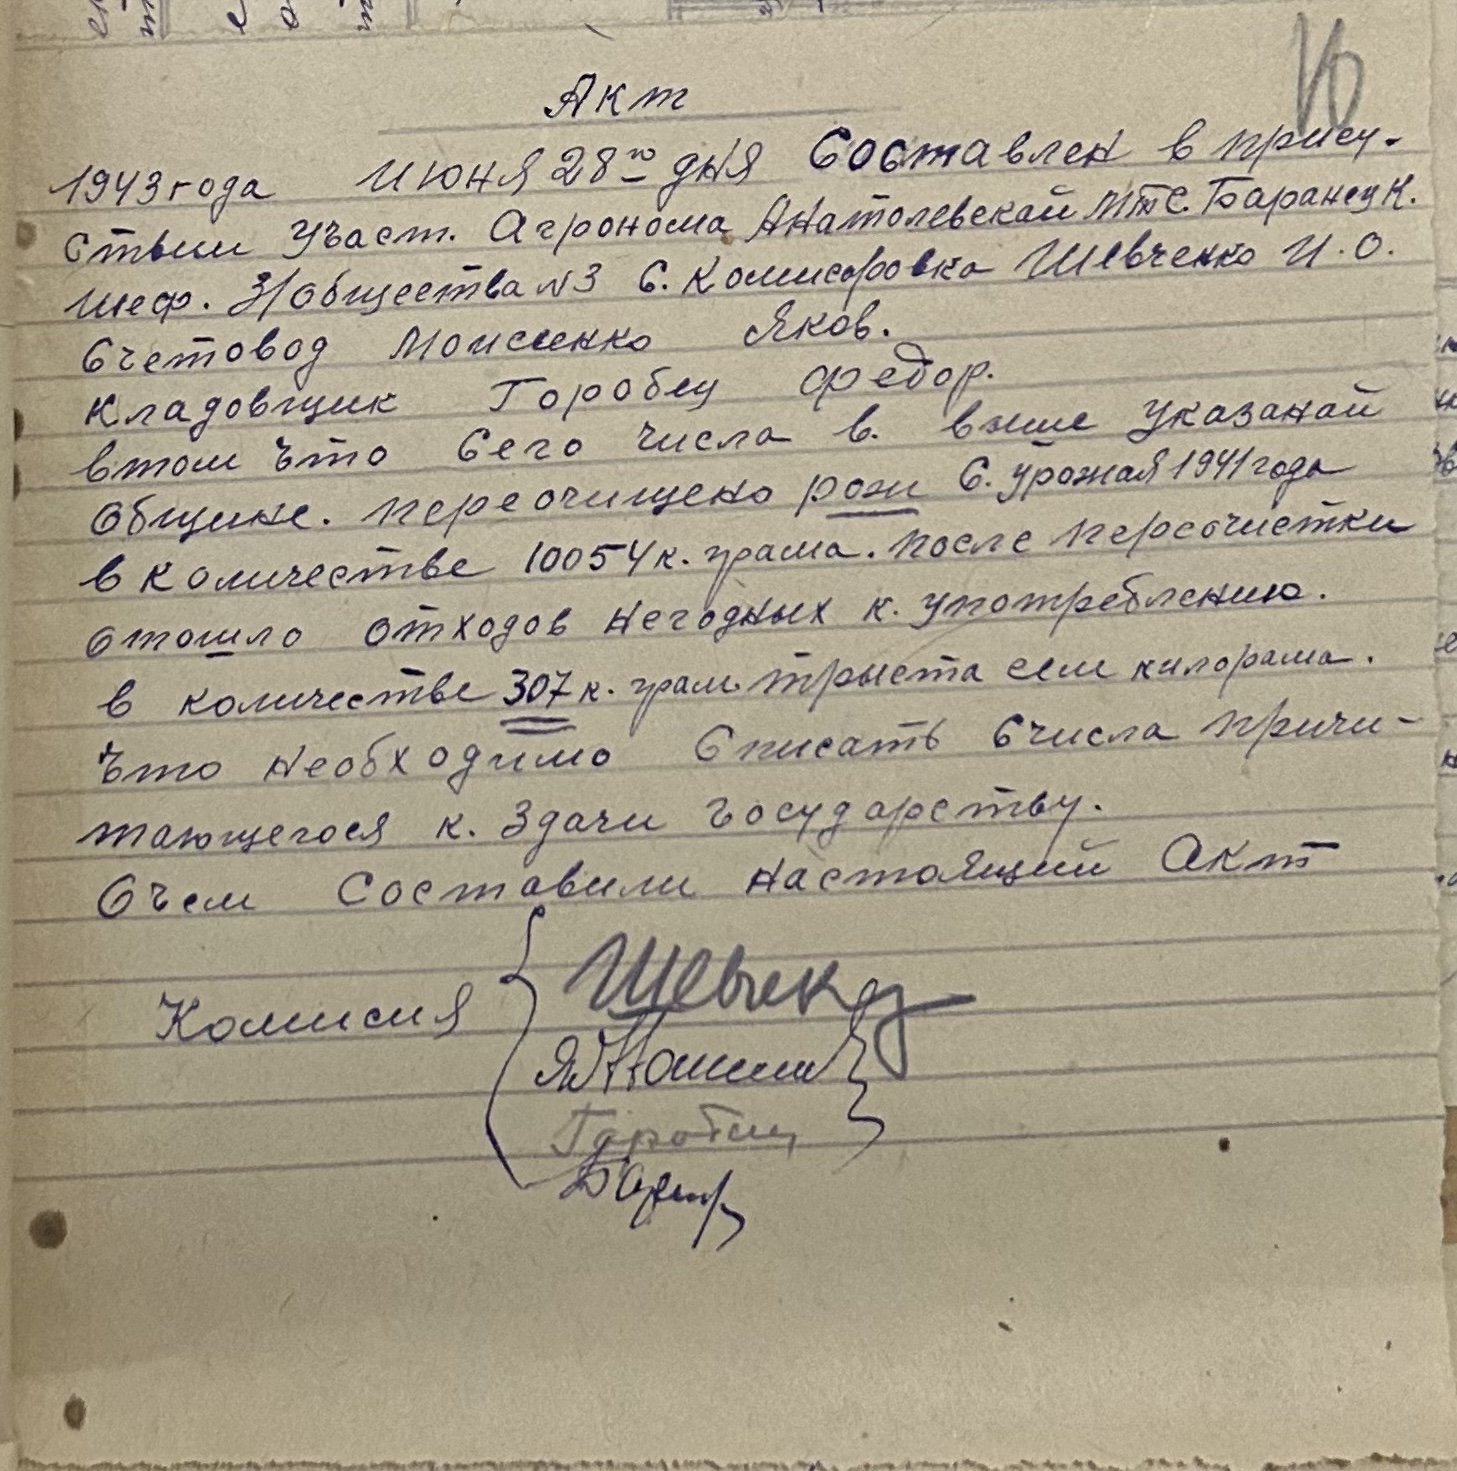 10
Акт
1943 года июня 28го дня Составлен в прису-
ствии Участ. Агронома Анатолевской МТС. Баранец К.
шеф. З/общества №3 С. Комисаровка Шевченко И. О.
Счетовод Моисеенко Яков.
Кладовщик Горобец Федор.
втом что Сего числа в. выше указаной
Общине. переочищено рожи С. урожая 1941 года
в количестве 10054 к. грама. после переочистки
отошло отходов негодных к. употреблению.
в количестве 307 к. грам. трыста сем килорама.
что необходимо Списать Счисла причи-
тающегося к. Здачи государству.
Очем Составили настоящий Акт
Комисия
Шевченко
Горобец